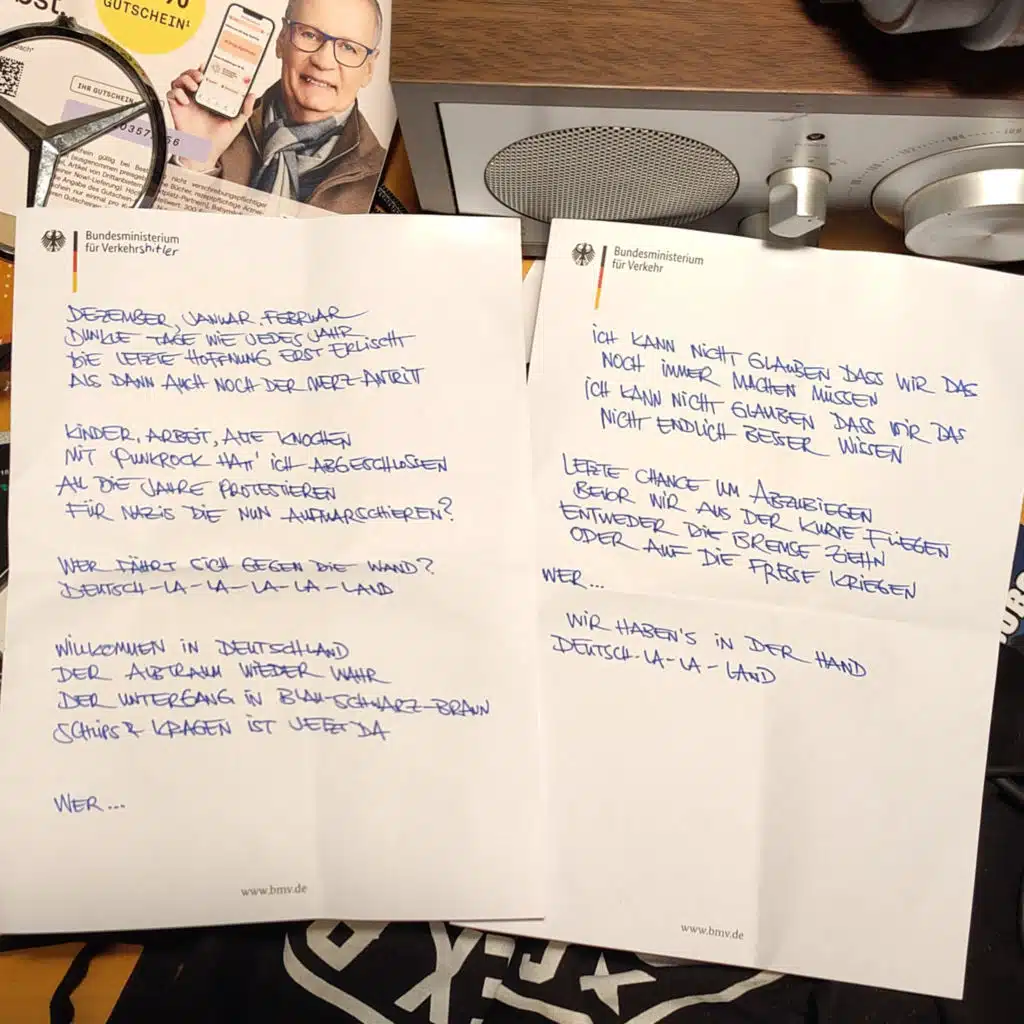 GUTSCHEIN¹
IHR GUTSCHEIN
Bundesministerium
für Verkehrshitler
DEZEMBER, JANUAR, FEBRUAR
DUNKLE TAGE WIE JEDES JAHR
DIE LETZTE HOFFNUNG ERST ERLISCHT
ALS DANN AUCH NOCH DER MERZ ANTRITT
KINDER, ARBEIT, ALTE KNOCHEN
MIT PUNKROCK HATT' ICH ABGESCHLOSSEN
ALL DIE JAHRE PROTESTIEREN
FÜR NAZIS DIE NUN AUFMARSCHIEREN?
WER FÄHRT SICH GEGEN DIE WAND?
DEUTSCH-LA-LA-LA-LA-LAND
WILLKOMMEN IN DEUTSCHLAND
DER ALBTRAUM WIEDER WAHR
DER UNTERGANG IN BLAU-SCHWARZ-BRAUN
SCHLIPS & KRAGEN IST JETZT DA
WER...
www.bmv.de
Bundesministerium
für Verkehr
ICH KANN NICHT GLAUBEN DASS WIR DAS
NOCH IMMER MACHEN MÜSSEN
ICH KANN NICHT GLAUBEN DASS WIR DAS
NICHT ENDLICH BESSER WISSEN
LETZTE CHANCE UM ABZUBIEGEN
BEVOR WIR AUS DER KURVE FLIEGEN
ENTWEDER DIE BREMSE ZIEHN
ODER AUF DIE FRESSE KRIEGEN
WER...
WIR HABEN'S IN DER HAND
DEUTSCH-LA-LA-LAND
www.bmv.de